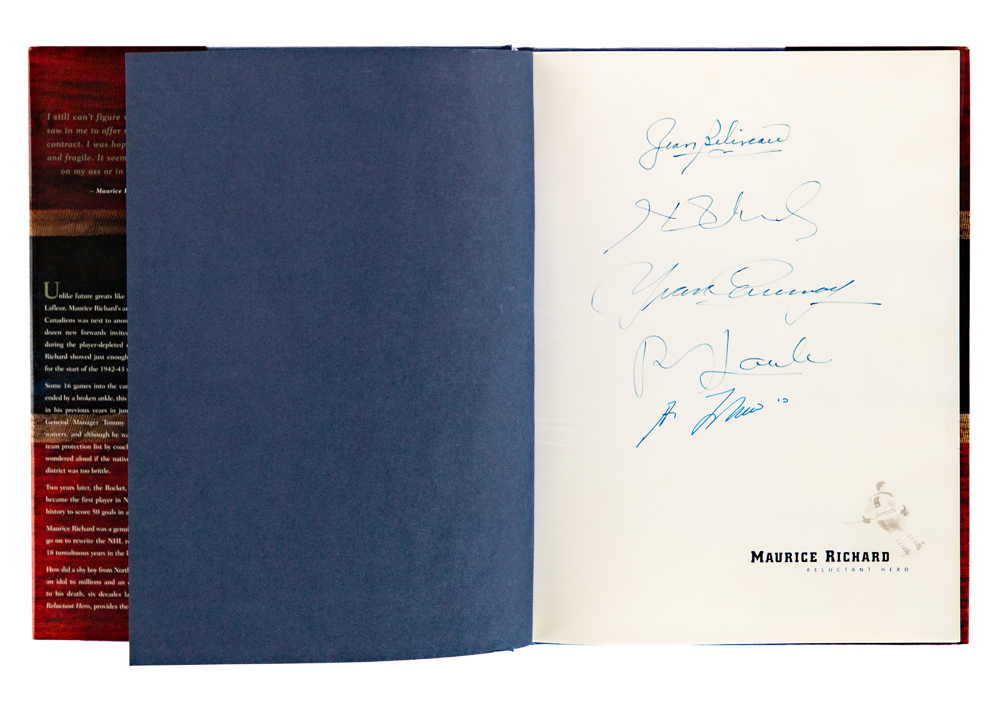 I still can't figure
saw in me to offer
contract. I was hop
and fragile. It seem
on my ass or in
– Maurice
Unlike future greats like
Lafleur, Maurice Richard's a
Canadiens was next to anon
dozen new forwards invite
during the player-depleted
Richard showed just enough
for the start of the 1942-43
Some 16 games into the ca
ended by a broken ankle, this
in his previous years in jun
General Manager Tommy
waivers, and although he wa
team protection list by
wondered aloud if the native
district was too brittle.
Two years later, the Rocket,
became the first player in N
history to score 50 goals in a
Maurice Richard was a genui
go on to rewrite the NHL r
18 tumultuous years in the l
How did a shy boy from Nort
an idol to millions and an
to his death, six decades la
Reluctant Hero, provides the
Jean Béliveau
Yvan Cournoyer
MAURICE RICHARD
RELUCTANT HERO